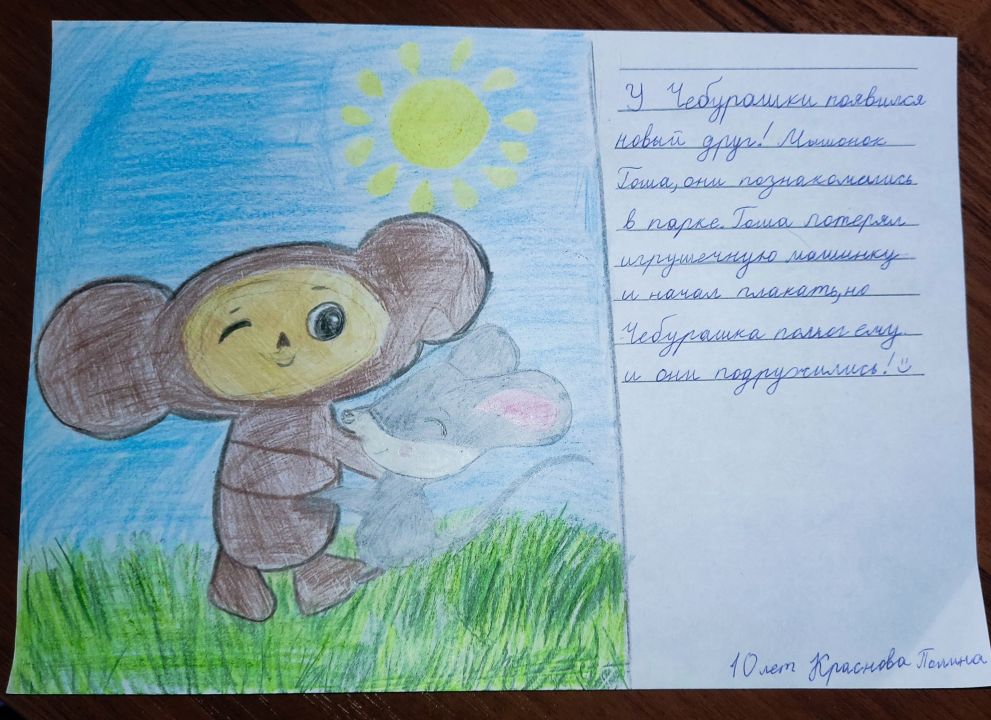 У Чебурашки появился
новый друг! Мышонок
Гоша, они познакомились
в парке. Гоша потерял
игрушечную машинку
и начал плакать, но
Чебурашка помог ему
и они подружились! :)
10 лет Краснова Полина